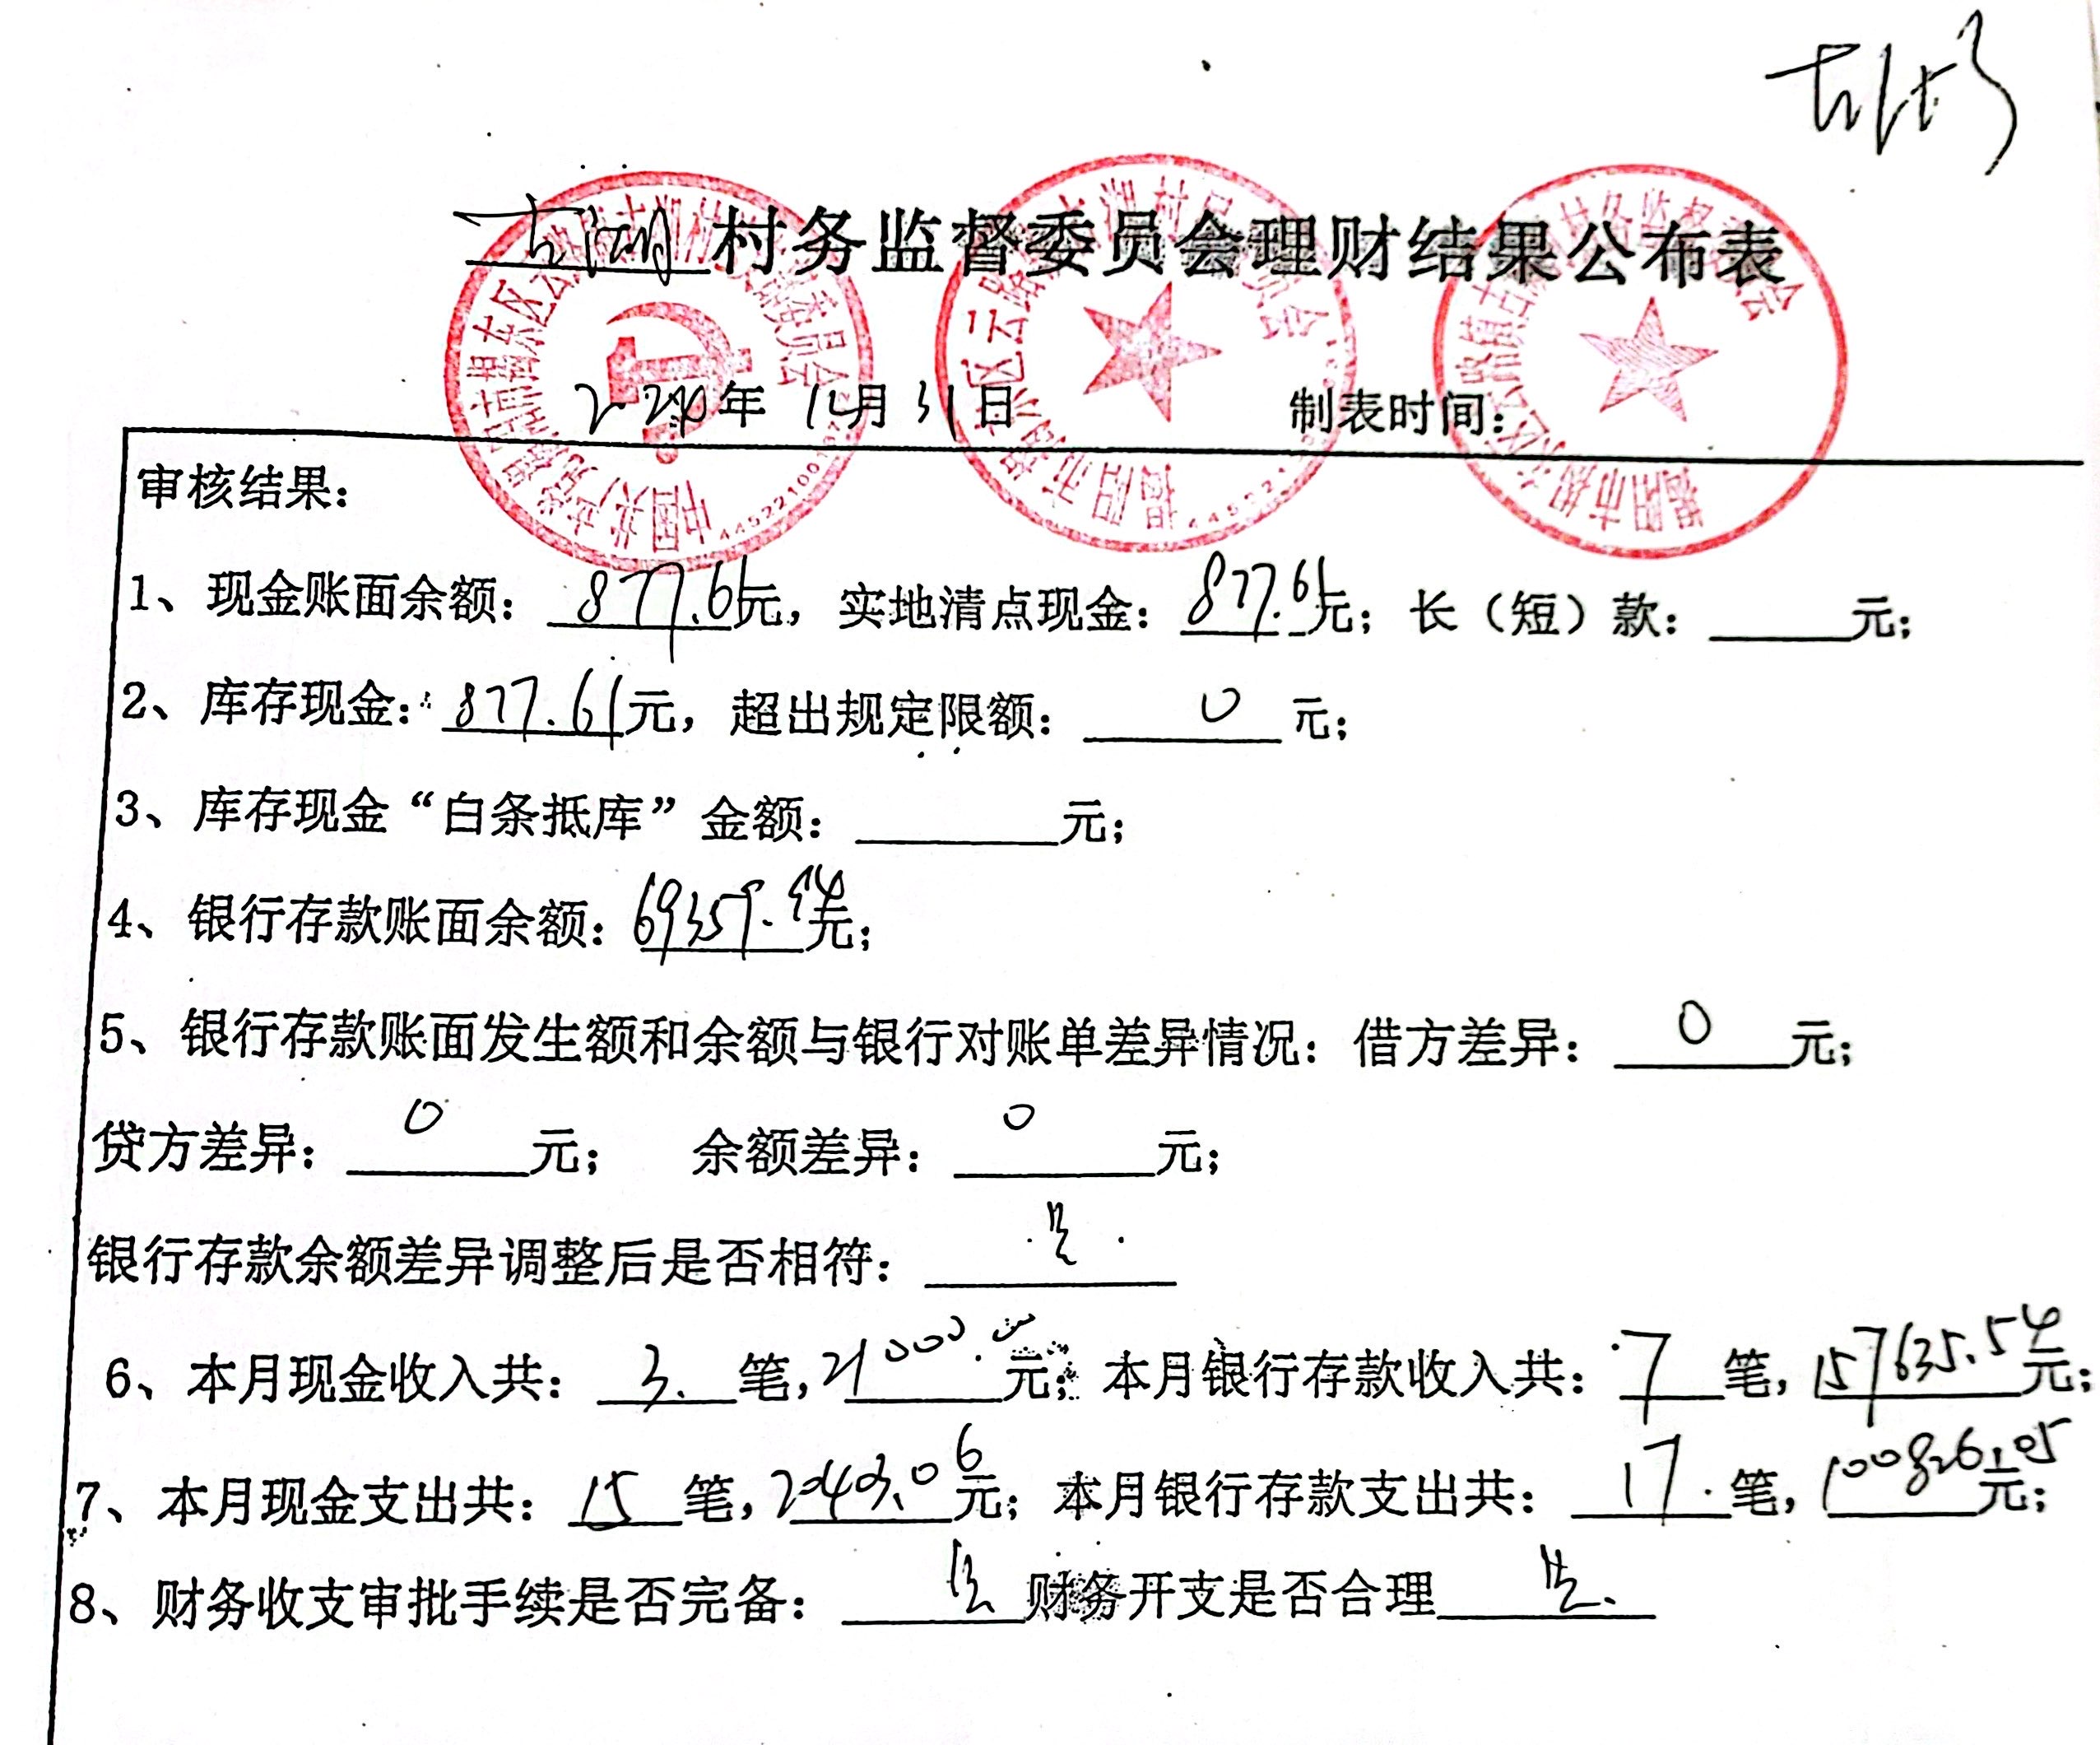 古湖村务监督委员会理财结果公布表
2020年 12月 31日 制表时间：
审核结果：
1、现金账面余额：877.61元，实地清点现金：877.61元；长（短）款：元；
2、库存现金：877.61元，超出规定限额：0元；
3、库存现金“白条抵库”金额：元；
4、银行存款账面余额：69359.94元；
5、银行存款账面发生额和余额与银行对账单差异情况：借方差异：0元；
贷方差异：0元； 余额差异：0元；
银行存款余额差异调整后是否相符：是
6、本月现金收入共：3笔，21000.00元；本月银行存款收入共：7笔，157635.54元；
7、本月现金支出共：15笔，元；本月银行存款支出共：17笔，100826.05元；
8、财务收支审批手续是否完备：是 财务开支是否合理 是